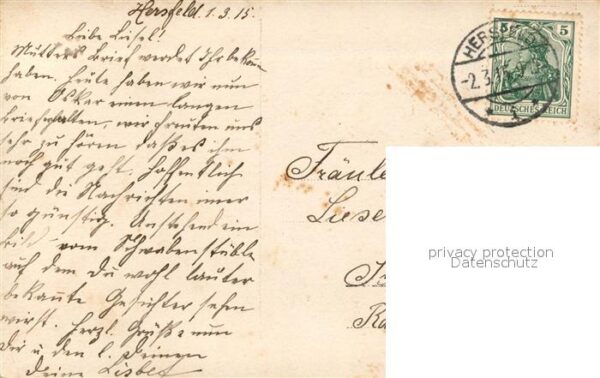 Hersfeld. 1.3.15.
Liebe Liesel!
Mutters Brief werdet Ihr bekom̄
haben. Heute haben wir nun
von Oskar einen langen
Brief erhalten, wir freuten uns
sehr zu hören daß es ihm
noch gut geht. Hoffentlich
sind die Nachrichten immer
so günstig. Anstehend ein
Bild vom Schwabenstüble
auf dem Du wohl lauter
bekannte Gesichter sehen
wirst. Herzl. Grüße nun
Dir u. den l. Deinen
Deine Lisbet
HERSFELD
-2.3.15
1
5
DEUTSCHES REICH
Fräule
Liese
privacy protection
Datenschutz